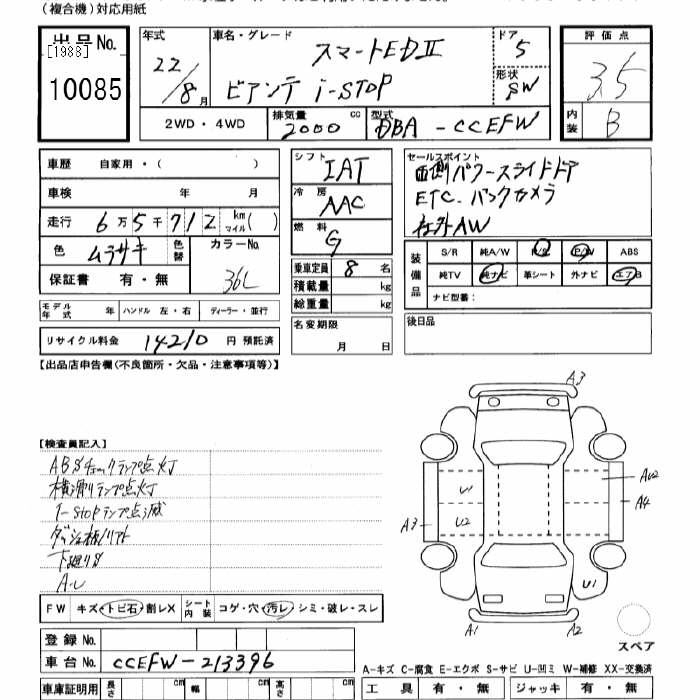 (複合機)対応用紙
出品No.
[1988]
10085
年式 22/8月
車名・グレード スマートEDⅡ
ビアンテ i-STOP
ドア 5
形状 SW
評価点 3.5
内装 B
2WD・4WD
排気量 2000 cc
型式 DBA-CCEFW
車歴 自家用・( )
車検 年 月
走行 6万5千712 km マイル( )
色 ムラサキ 色替 カラーNo. 36L
保証書 有・無
シフト IAT
冷房 AAC
燃料 G
乗車定員 8名
積載量 kg
総重量 kg
セールスポイント
両側パワースライドドア
ETC.バックカメラ
社外AW
装備品
S/R 純A/W P/S P/W ABS
純TV 純ナビ 革シート 外ナビ エアB
ナビ型番:
モデル年式 年 ハンドル 左・右 ディーラー・並行
リサイクル料金 14210 円 預託済
名変期限 月 日
後日品
【出品店申告欄(不良箇所・欠品・注意事項等)】
【検査員記入】
ABSチェックランプ点灯
横滑りランプ点灯
i-stopランプ点滅
下廻りS
A3
U1
U2
A3
A4
U1
A1
A2
スペア
FW キズ・トビ石・割レX シート内装 コゲ・穴・汚レ・シミ・破レ・スレ
登録No.
車台No. CCEFW-213396
A-キズ C-腐食 E-エクボ S-サビ U-凹ミ W-補修 XX-交換済
車庫証明用 長さ cm 幅 cm 高さ cm
工具 有・無 ジャッキ 有・無